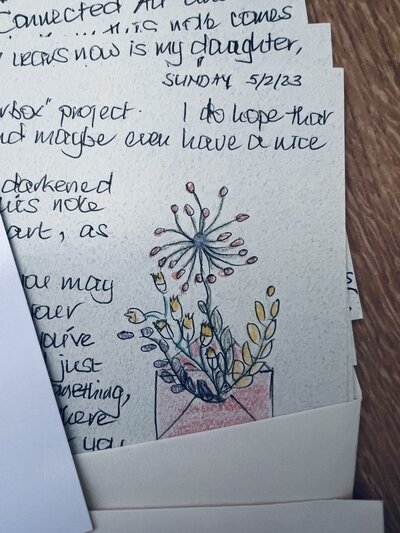 Connected Art
this note comes
years now is my daughter,
SUNDAY 5/2/23
box" project. I do hope that
nd maybe even have a nice
darkened
his note
art, as
you may
your
you've
just
mething,
here
you